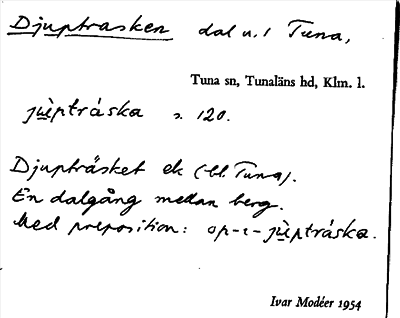 Djuptrasken dal u. / Tuna,
Tuna sn, Tunaläns hd, Klm. l.
jùptráska s. 120.
Djupträsket ek (bl. Tuna).
En dalgång mellan berg.
Med preposition: op-ı-jùptráska.
Ivar Modéer 1954